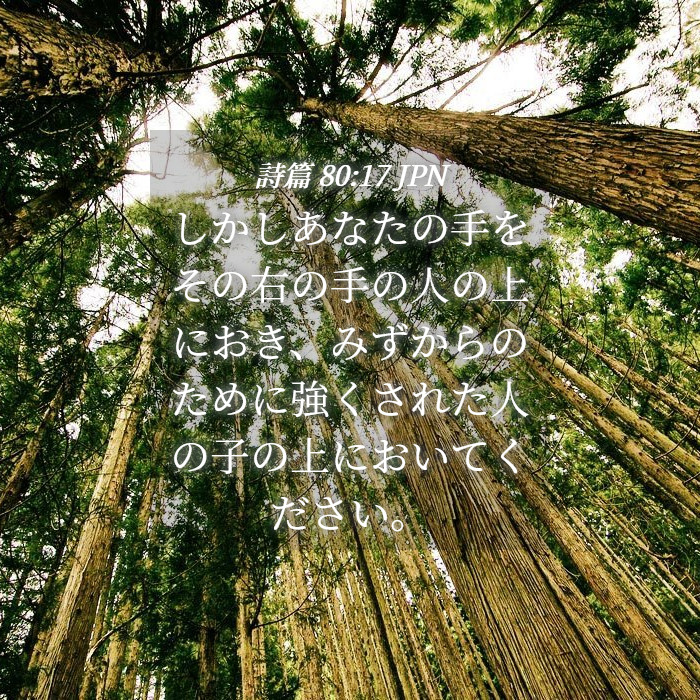 詩篇 80:17 JPN
しかしあなたの手を
その右の手の人の上
におき、みずからの
ために強くされた人
の子の上においてく
ださい。